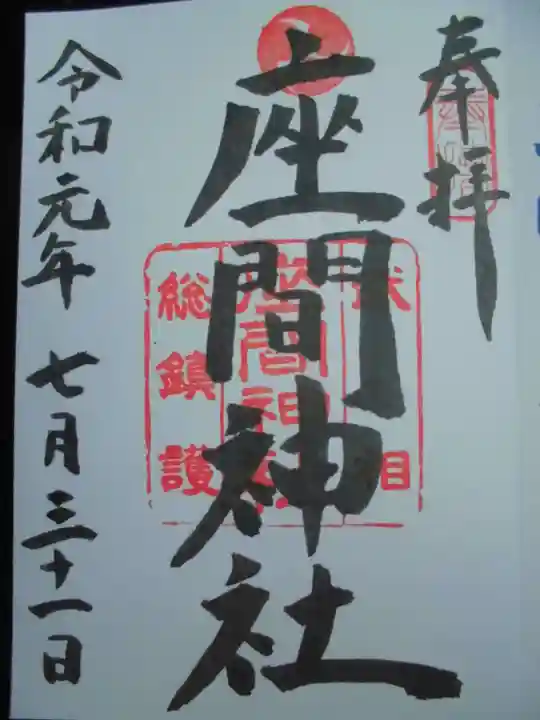 奉拝
座間神社
令和元年 七月三十一日
座間神社
総鎮護